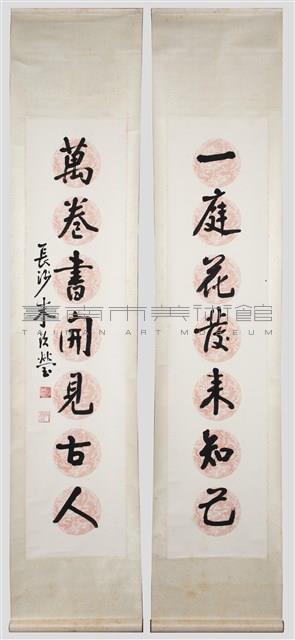 一庭花發来知己
萬卷書開見古人
長沙李
臺南市美術館
TAINAN ART MUSEUM